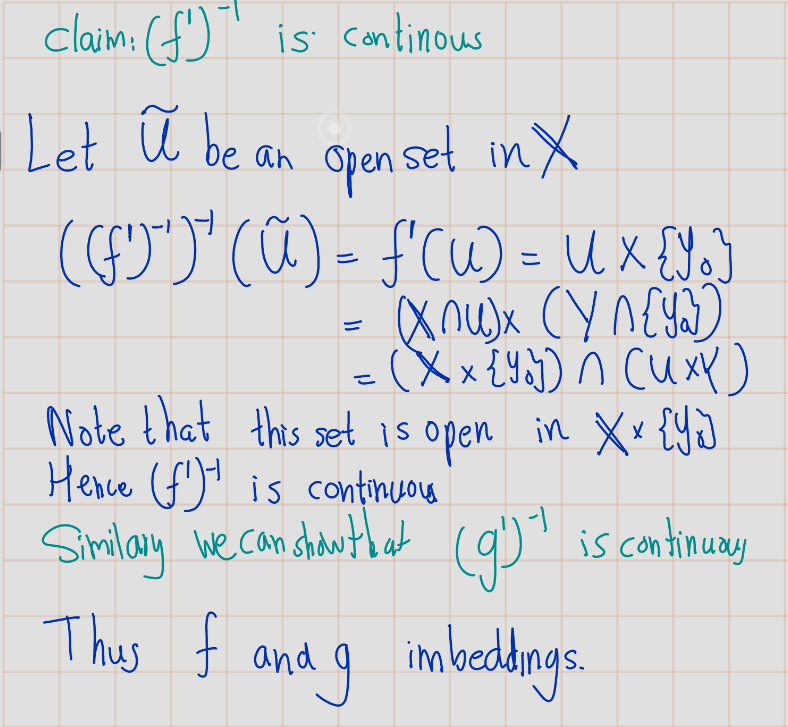 Claim: (f')⁻¹ is continous
Let Ũ be an open set in X
((f')⁻¹)⁻¹ (Ũ) = f'(U) = U × {y₀}
= (X ∩ U) × (Y ∩ {y₀})
= (X × {y₀}) ∩ (U × Y)
Note that this set is open in X × {y₀}
Hence (f')⁻¹ is continuous
Similary we can show that (g')⁻¹ is continuous
Thus f and g imbeddings.